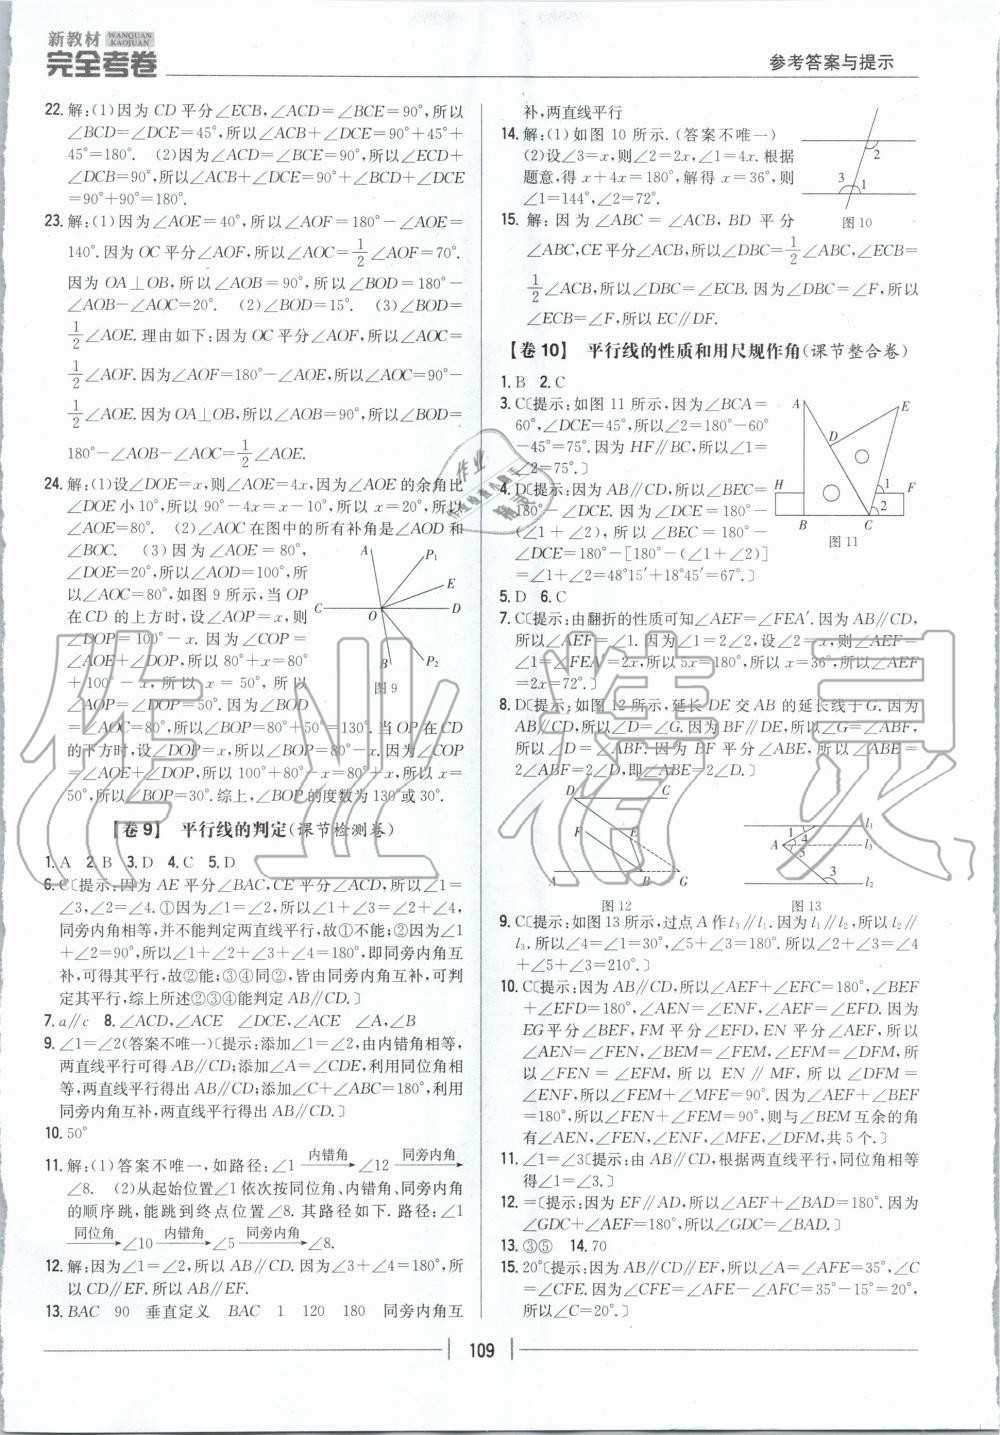 新教材 WANQUAN KAOJUAN
完全考卷
参考答案与提示
22. 解:(1)因为CD平分∠ECB,∠ACD=∠BCE=90°,所以
∠BCD=∠DCE=45°,所以∠ACB+∠DCE=90°+45°+
45°=180°. (2)因为∠ACD=∠BCE=90°,所以∠ECD+
∠DCB=90°,所以∠ACB+∠DCE=90°+∠BCD+∠DCE
=90°+90°=180°.
23. 解:(1)因为∠AOE=40°,所以∠AOF=180°-∠AOE=
140°.因为OC平分∠AOF,所以∠AOC=1/2∠AOF=70°.
因为OA⊥OB,所以∠AOB=90°,所以∠BOD=180°-
∠AOB-∠AOC=20°. (2)∠BOD=15° (3)∠BOD=
1/2∠AOE.理由如下:因为OC平分∠AOF,所以∠AOC=
1/2∠AOF.因为∠AOF=180°-∠AOE,所以∠AOC=90°-
1/2∠AOE.因为OA⊥OB,所以∠AOB=90°,所以∠BOD=
180°-∠AOB-∠AOC=1/2∠AOE.
24. 解:(1)设∠DOE=x,则∠AOE=4x,因为∠AOE的余角比
∠DOE小10°,所以90°-4x=x-10°,所以x=20°,所以
∠AOE=80°. (2)∠AOC在图中的所有补角是∠AOD和
∠BOC. (3)因为∠AOE=80°,
∠DOE=20°,所以∠AOD=100°,所
以∠AOC=80°,如图9所示,当OP
在CD的上方时,设∠AOP=x,则
∠DOP=100°-x.因为∠COP=
∠AOE+∠DOP,所以80°+x=80°
+100°-x,所以x=50°,所以
∠AOP=∠DOP=50°.因为∠BOD
=∠AOC=80°,所以∠BOP=80°+50°=130°.当OP在CD
的下方时,设∠DOP=x,所以∠BOP=80°-x.因为∠COP
=∠AOE+∠DOP,所以100°+80°-x=80°+x,所以x=
50°,所以∠BOP=30°.综上,∠BOP的度数为130°或30°.
A P₁ E C O D B P₂
图9
【卷9】 平行线的判定(课节检测卷)
1. A 2. B 3. D 4. C 5. D
6. C〔提示:因为AE平分∠BAC,CE平分∠ACD,所以∠1=
∠3,∠2=∠4.①因为∠1=∠2,所以∠1+∠3=∠2+∠4,
同旁内角相等,并不能判定两直线平行,故①不能;②因为∠1
+∠2=90°,所以∠1+∠2+∠3+∠4=180°,即同旁内角互
补,可得其平行,故②能;③④同②,皆由同旁内角互补,可判
定其平行,综上所述②③④能判定AB∥CD.〕
7. a∥c 8. ∠ACD,∠ACE ∠DCE,∠ACE ∠A,∠B
9. ∠1=∠2(答案不唯一)〔提示:添加∠1=∠2,由内错角相等,
两直线平行可得AB∥CD;添加∠A=∠CDE,利用同位角相
等,两直线平行得出AB∥CD;添加∠C+∠ABC=180°,利用
同旁内角互补,两直线平行得出AB∥CD.〕
10. 50°
11. 解:(1)答案不唯一,如路径:∠1 内错角→ ∠12 同旁内角→
∠8. (2)从起始位置∠1依次按同位角、内错角、同旁内角
的顺序跳,能跳到终点位置∠8.其路径如下.路径:∠1
同位角→ ∠10 内错角→ ∠5 同旁内角→ ∠8.
12. 解:因为∠1=∠2,所以AB∥CD.因为∠3+∠4=180°,所
以CD∥EF.所以AB∥EF.
13. BAC 90 垂直定义 BAC 1 120 180 同旁内角互
补,两直线平行
14. 解:(1)如图10所示.(答案不唯一)
(2)设∠3=x,则∠2=2x,∠1=4x.根据
题意,得x+4x=180°,解得x=36°,则
∠1=144°,∠2=72°.
2 3 1
图10
15. 解:因为∠ABC=∠ACB,BD平分
∠ABC,CE平分∠ACB,所以∠DBC=1/2∠ABC,∠ECB=
1/2∠ACB,所以∠DBC=∠ECB.因为∠DBC=∠F,所以
∠ECB=∠F,所以EC∥DF.
【卷10】 平行线的性质和用尺规作角(课节整合卷)
1. B 2. C
3. C〔提示:如图11所示,因为∠BCA=
60°,∠DCE=45°,所以∠2=180°-60°
-45°=75°.因为HF∥BC,所以∠1=
∠2=75°.〕
4. D〔提示:因为AB∥CD,所以∠BEC=
180°-∠DCE.因为∠DCE=180°-
(∠1+∠2),所以∠BEC=180°-
∠DCE=180°-[180°-(∠1+∠2)]
=∠1+∠2=48°15′+18°45′=67°.〕
A E D H 1 F B C 2
图11
5. D 6. C
7. C〔提示:由翻折的性质可知∠AEF=∠FEA′.因为AB∥CD,
所以∠AEF=∠1.因为∠1=2∠2,设∠2=x,则∠AEF=
∠1=∠FEA′=2x,所以5x=180°,所以x=36°,所以∠AEF
=2x=72°.〕
8. D〔提示:如图12所示,延长DE交AB的延长线于G.因为
AB∥CD,所以∠D=∠G.因为BF∥DE,所以∠G=∠ABF,
所以∠D=∠ABF.因为BF平分∠ABE,所以∠ABE=
2∠ABF=2∠D,即∠ABE=2∠D.〕
D C F E A B G
图12
1 4 l₁ A 5 l₃ 3 l₂
图13
9. C〔提示:如图13所示,过点A作l₃∥l₁.因为l₁∥l₂,所以l₂∥
l₃.所以∠4=∠1=30°,∠5+∠3=180°.所以∠2+∠3=∠4
+∠5+∠3=210°.〕
10. C〔提示:因为AB∥CD,所以∠AEF+∠EFC=180°,∠BEF
+∠EFD=180°,∠AEN=∠ENF,∠AEF=∠EFD.因为
EG平分∠BEF,FM平分∠EFD,EN平分∠AEF,所以
∠AEN=∠FEN,∠BEM=∠FEM,∠EFM=∠DFM,所
以∠FEN=∠EFM,所以EN∥MF,所以∠DFM=
∠ENF,所以∠FEM+∠MFE=90°.因为∠AEF+∠BEF
=180°,所以∠FEN+∠FEM=90°,则与∠BEM互余的角
有∠AEN,∠FEN,∠ENF,∠MFE,∠DFM,共5个.〕
11. ∠1=∠3〔提示:由AB∥CD,根据两直线平行,同位角相等
得∠1=∠3.〕
12. =〔提示:因为EF∥AD,所以∠AEF+∠BAD=180°.因为
∠GDC+∠AEF=180°,所以∠GDC=∠BAD.〕
13. ③⑤ 14. 70
15. 20°〔提示:因为AB∥CD∥EF,所以∠A=∠AFE=35°,∠C
=∠CFE.因为∠CFE=∠AFE-∠AFC=35°-15°=20°,
所以∠C=20°.〕
109
作业精灵